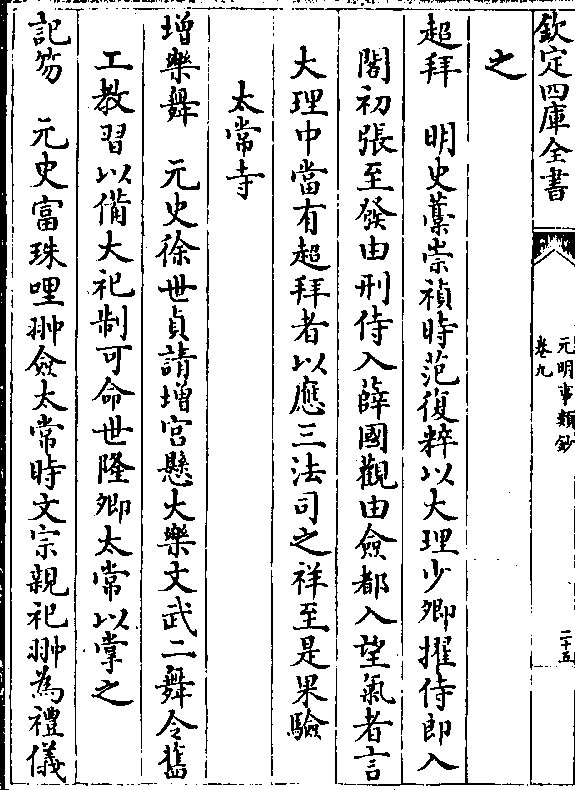 欽定四庫全書
元明事類鈔
卷九
二十五
之
超拜　明史藁崇禎時范復粹以大理少卿擢侍郎入
閣初張至發由刑侍入薛國觀由僉都入望氣者言
大理中當有超拜者以應三法司之祥至是果驗
太常寺
增樂舞　元史徐世貞請增宮懸大樂文武二舞令舊
工教習以備大祀制可命世隆卿太常以掌之
記笏　元史富珠哩翀僉太常時文宗親祀翀為禮儀